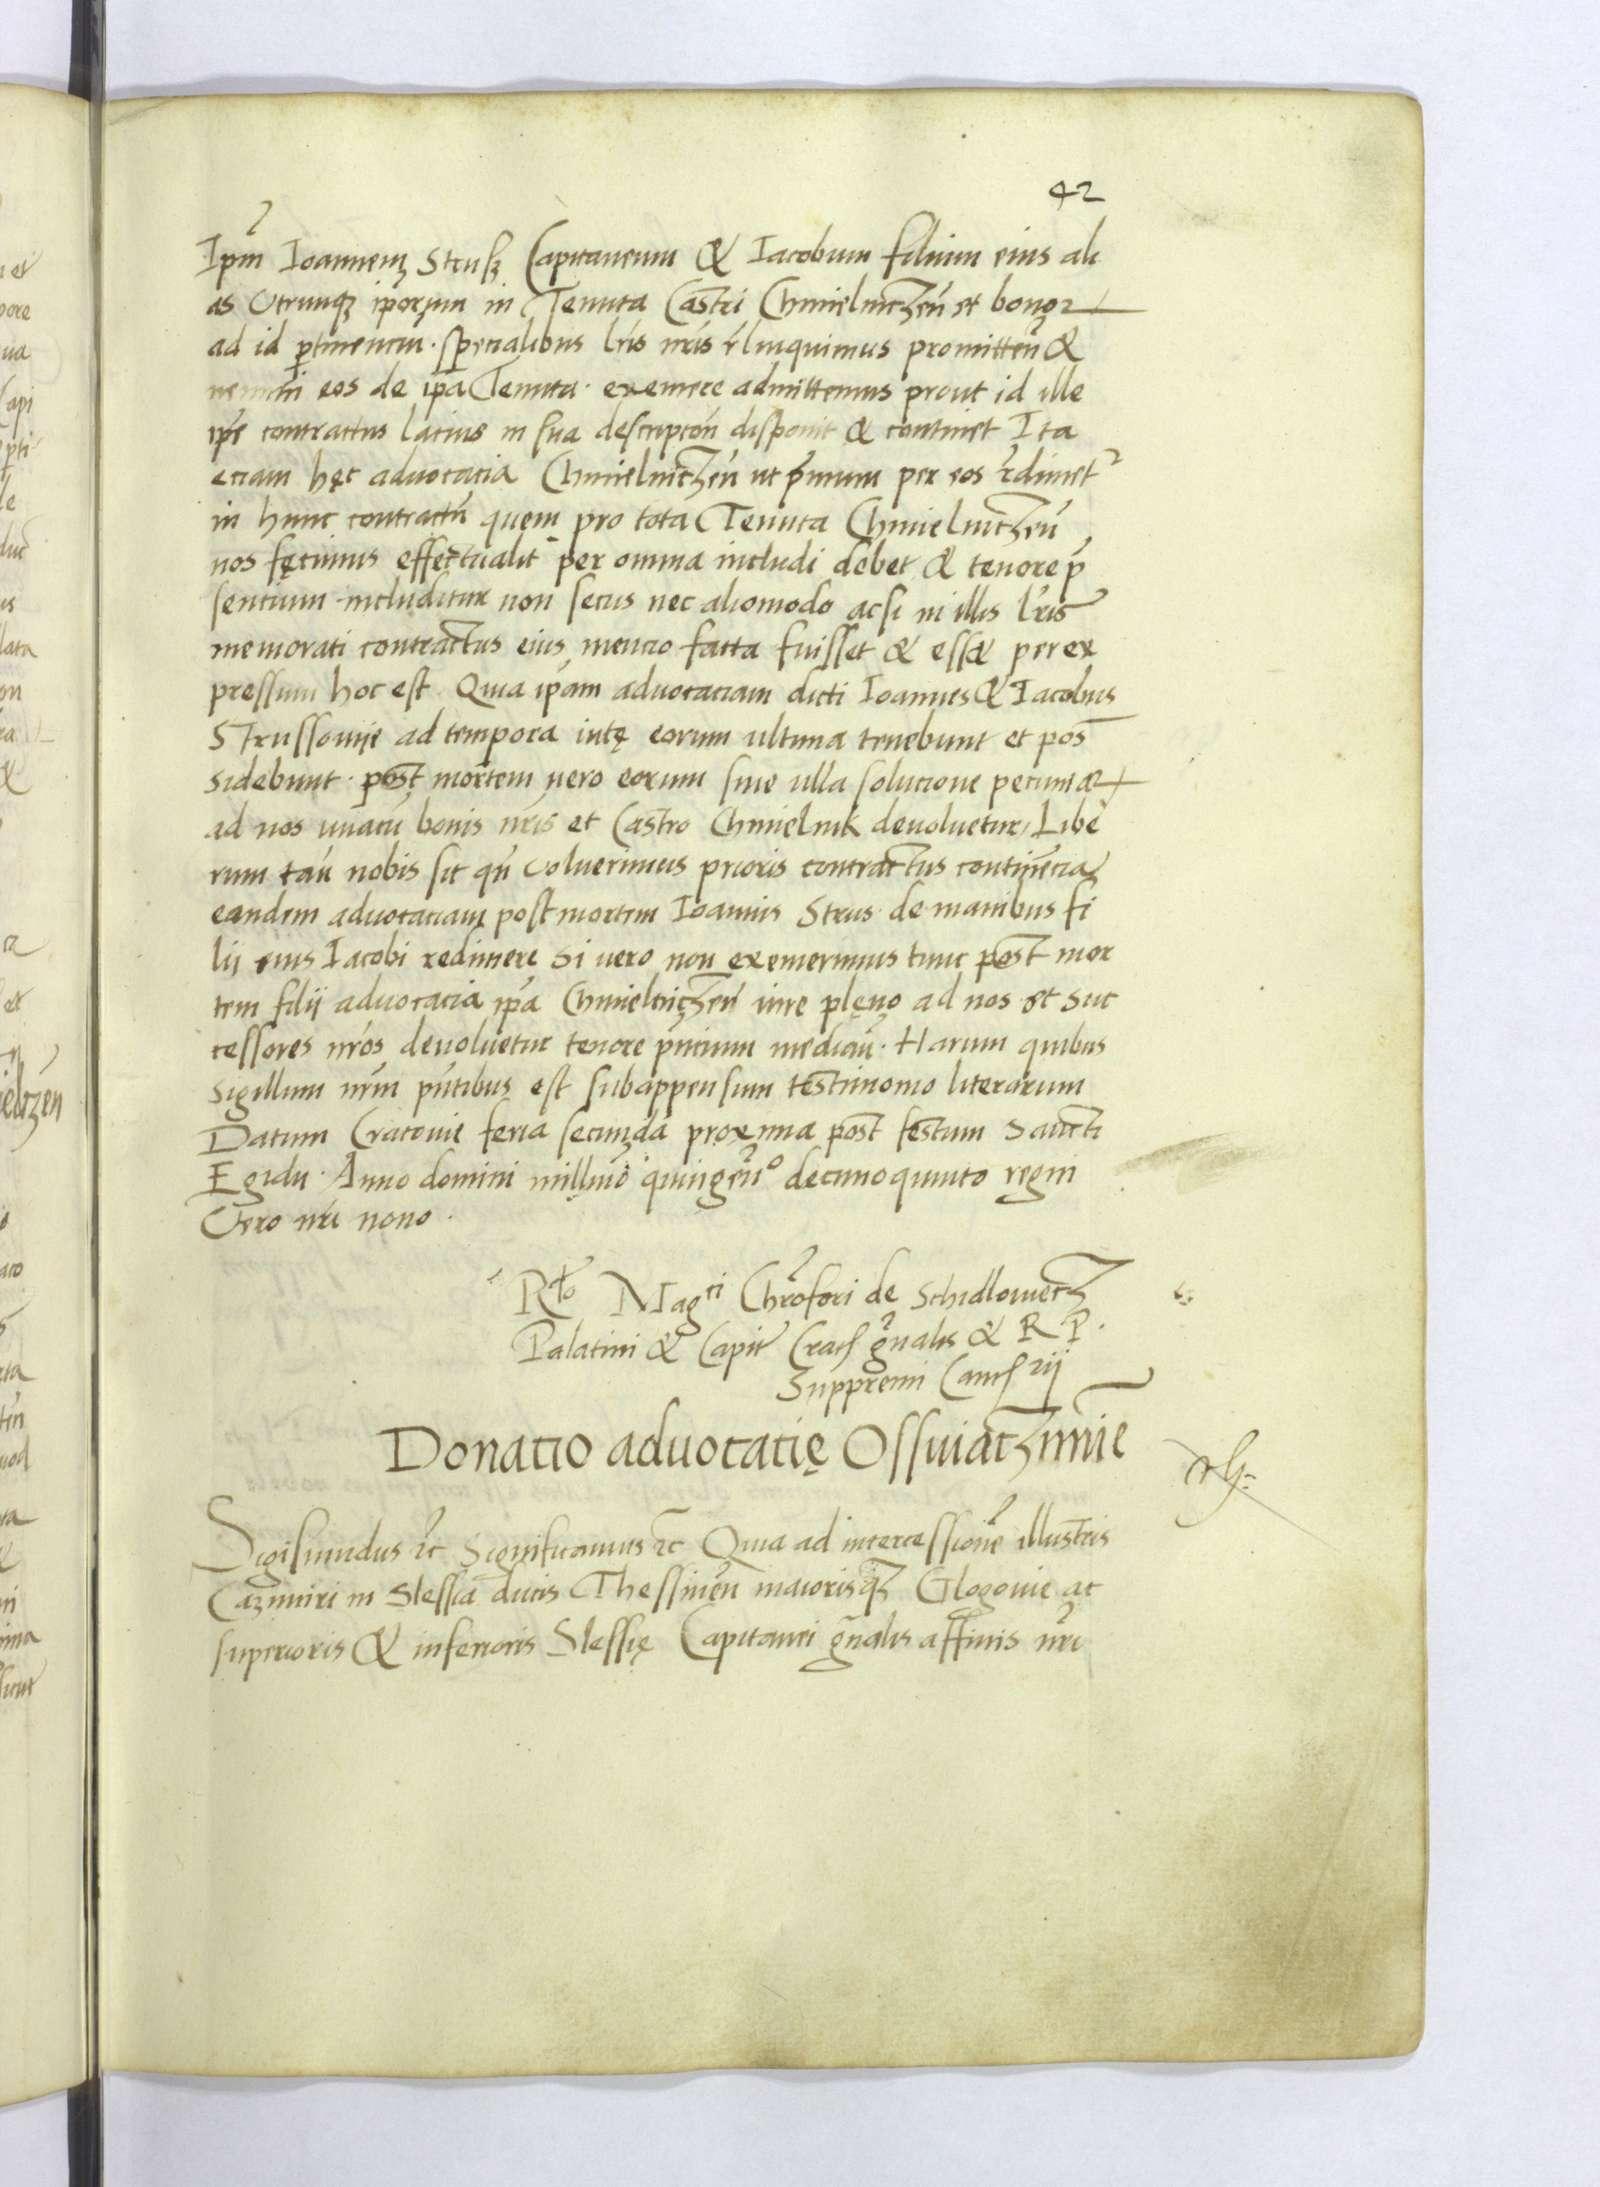 42
Ipm̃ Ioannem Strusz Capitaneum & Iacobum filium eius ali
as Utrunqz ipsorum in Tenuta Castri Chmielniczen̄ et bonoꝝ
ad id ptinencium. specialibus lr̃is nr̃is rlinquimus promitten̄ &
nemini eos de ip̃a Tenuta. exemere admittemus prout id ille
ip̃e contractus lacius in sua descripcōn disponit & continet Ita
eciam hęc advocacia Chmielniczen̄ ut pmum per eos rdimet
in hunc contractū quem pro tota Tenuta Chmielniczen̄
nos fęcimus effectualit per omnia includi debet & tenore p̄
sencium includitur non secus nec aliomodo acsi in illis lr̃is
memorati contractus eius mencio facta fuisset & esset per ex
pressum hoc est Quia ip̃am advocaciam dicti Ioannes & Iacobus
Strussowije ad tempora vitę eorum ultima tenebunt et pos
sidebunt. post mortem vero eorum sine ulla solucione pecuniaꝝ
ad nos unacū bonis nr̃is et Castro Chmielnik devoluetur, Libe
rum tan̄ nobis sit qn̄ Voluerimus prioris contractus continēcia
eandem advocaciam post mortem Ioannis Strus de manibus fi
lii eius Iacobi redimere Si vero non exemerimus tunc post mor
tem filii advocacia ip̃a Chmielniczen̄ iure plęno ad nos et suc
cessores nr̃os devoluetur tenore pn̄cium median̄. Harum quibus
Sigillum nr̃m pn̄tibus est subappensum testimonio literarum
Datum Cracovie feria secunda proxima post festum Sancti
Egidii. Anno domini mill̃mo quingen̄º decimoquinto regni
Vero nr̃i nono.
Rło Magci Chrofori de Schidlowecz
Palatini & Capit Crac gn̄alis & R P.
Suppremi Canc rij
Donacio advocacię Osswiaczimie
Sigismundus rc Significamus rc Quia ad intercessionē illustris
Cazimiri in Slessia ducis Thessinen̄ maiorisqz Glogovie ac
superioris & inferioris Slessię Capitanei gn̄alis affinis nr̃i